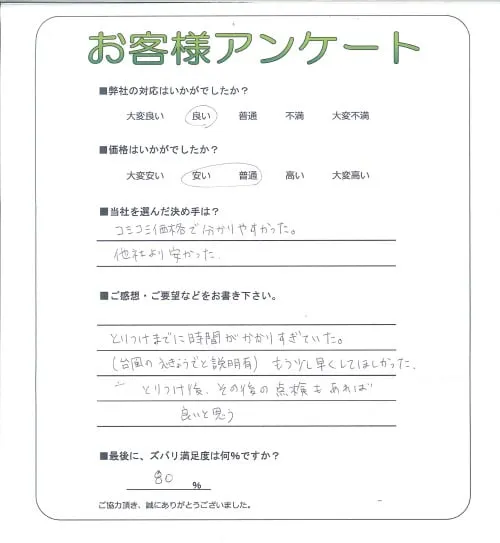 お客様アンケート
■弊社の対応はいかがでしたか？
大変良い 良い 普通 不満 大変不満
■価格はいかがでしたか？
大変安い 安い 普通 高い 大変高い
■当社を選んだ決め手は？
コミコミ価格で分かりやすかった。
他社より安かった.
■ご感想・ご要望などをお書き下さい。
とりつけまでに時間がかかりすぎていた。
(台風のえきょうでと説明有) もう少し早くしてほしかった.
とりつけ後、その後の点検もあれば
良いと思う
■最後に、ズバリ満足度は何%ですか？
80 %
ご協力頂き、誠にありがとうございました。